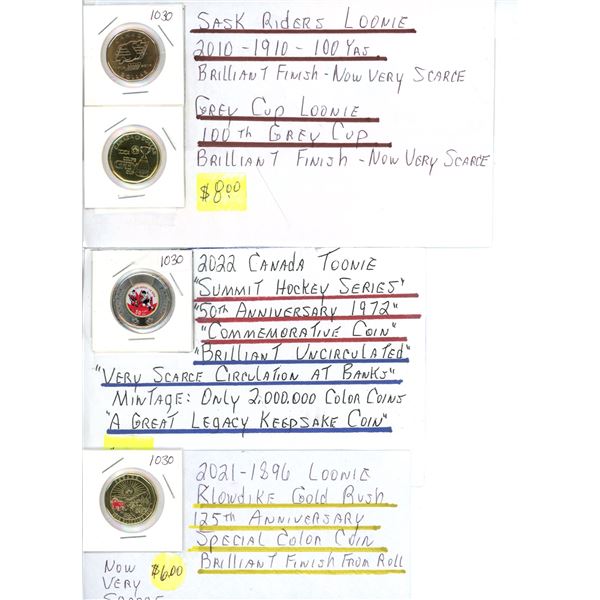 1030
SASK RIDERS LOONIE
2010 - 1910 - 100 YRS.
BRILLIANT FINISH - NOW VERY SCARCE
GREY CUP LOONIE
100TH GREY CUP
BRILLIANT FINISH - NOW VERY SCARCE
$8.00
1030
2022 CANADA TOONIE
"SUMMIT HOCKEY SERIES"
"50TH ANNIVERSARY 1972"
"COMMEMORATIVE COIN"
"BRILLIANT UNCIRCULATED"
"VERY SCARCE CIRCULATION AT BANKS"
MINTAGE: ONLY 2,000,000 COLOR COINS
"A GREAT LEGACY KEEPSAKE COIN"
1030
2021-1896 LOONIE
KLOWDIKE GOLD RUSH
125TH ANNIVERSARY
SPECIAL COLOR COIN
BRILLIANT FINISH FROM ROLL
NOW
VERY
SCARCE
$6.00